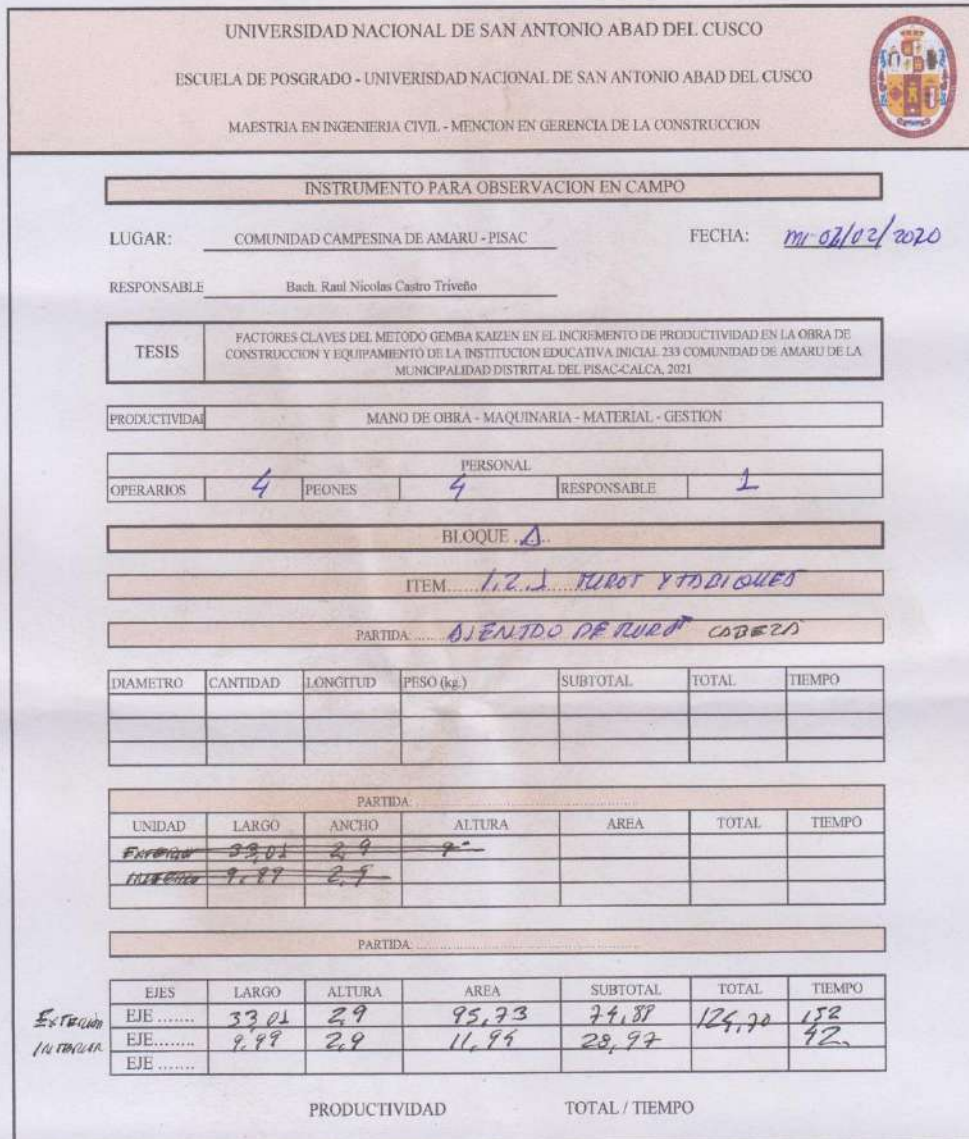 UNIVERSIDAD NACIONAL DE SAN ANTONIO ABAD DEL CUSCO
ESCUELA DE POSGRADO - UNIVERISDAD NACIONAL DE SAN ANTONIO ABAD DEL CUSCO
MAESTRIA EN INGENIERIA CIVIL - MENCION EN GERENCIA DE LA CONSTRUCCION
INSTRUMENTO PARA OBSERVACION EN CAMPO
LUGAR: COMUNIDAD CAMPESINA DE AMARU - PISAC FECHA: /02/2020
RESPONSABLE Bach. Raul Nicolas Castro Triveño
TESIS FACTORES CLAVES DEL METODO GEMBA KAIZEN EN EL INCREMENTO DE PRODUCTIVIDAD EN LA OBRA DE
CONSTRUCCION Y EQUIPAMIENTO DE LA INSTITUCION EDUCATIVA INICIAL 233 COMUNIDAD DE AMARU DE LA
MUNICIPALIDAD DISTRITAL DEL PISAC-CALCA, 2021
PRODUCTIVIDAI MANO DE OBRA - MAQUINARIA - MATERIAL - GESTION
PERSONAL
OPERARIOS 4 PEONES 4 RESPONSABLE 1
BLOQUE
ITEM...... 1.2.1 MUROS Y TABIQUES
PARTIDA: ...... ASENTADO DE MUROS CABEZA
DIAMETRO CANTIDAD LONGITUD PESO (kg.) SUBTOTAL TOTAL TIEMPO
PARTIDA: ......
UNIDAD LARGO ANCHO ALTURA AREA TOTAL TIEMPO
EXTERIOR 33,01 2,9
INTERIOR 9,99 2,9
PARTIDA: ......
EJES LARGO ALTURA AREA SUBTOTAL TOTAL TIEMPO
EXTERIOR EJE ....... 33,01 2,9 95,73 124,70 152
INTERIOR EJE ....... 9,99 2,9 28,97 42
EJE .......
PRODUCTIVIDAD TOTAL / TIEMPO